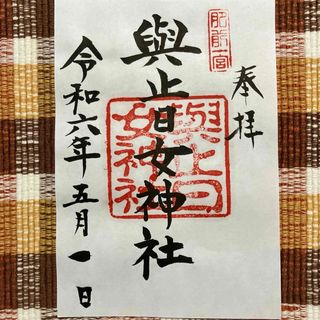 奉拝
肥前一宮
與止日女神社
與止日女神社
令和六年五月一日